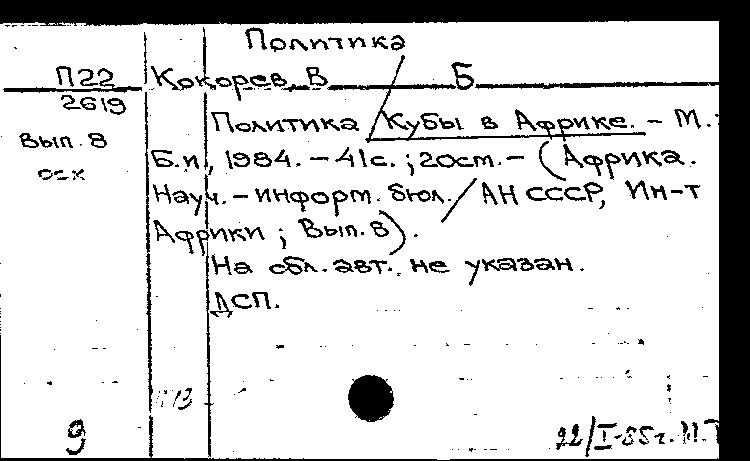 Политика
П22 Кокорев, В. Б
2619
Политика /Кубы в Африке. – М.:
Вып. 8
Б.и., 1984. – 41с.; 20см. – (Африка.
оск
Науч. – информ. бюл. / АН СССР, Ин-т
Африки ; Вып. 8).
На обл. авт. не указан.
ДСП.
9
22/I-85г.